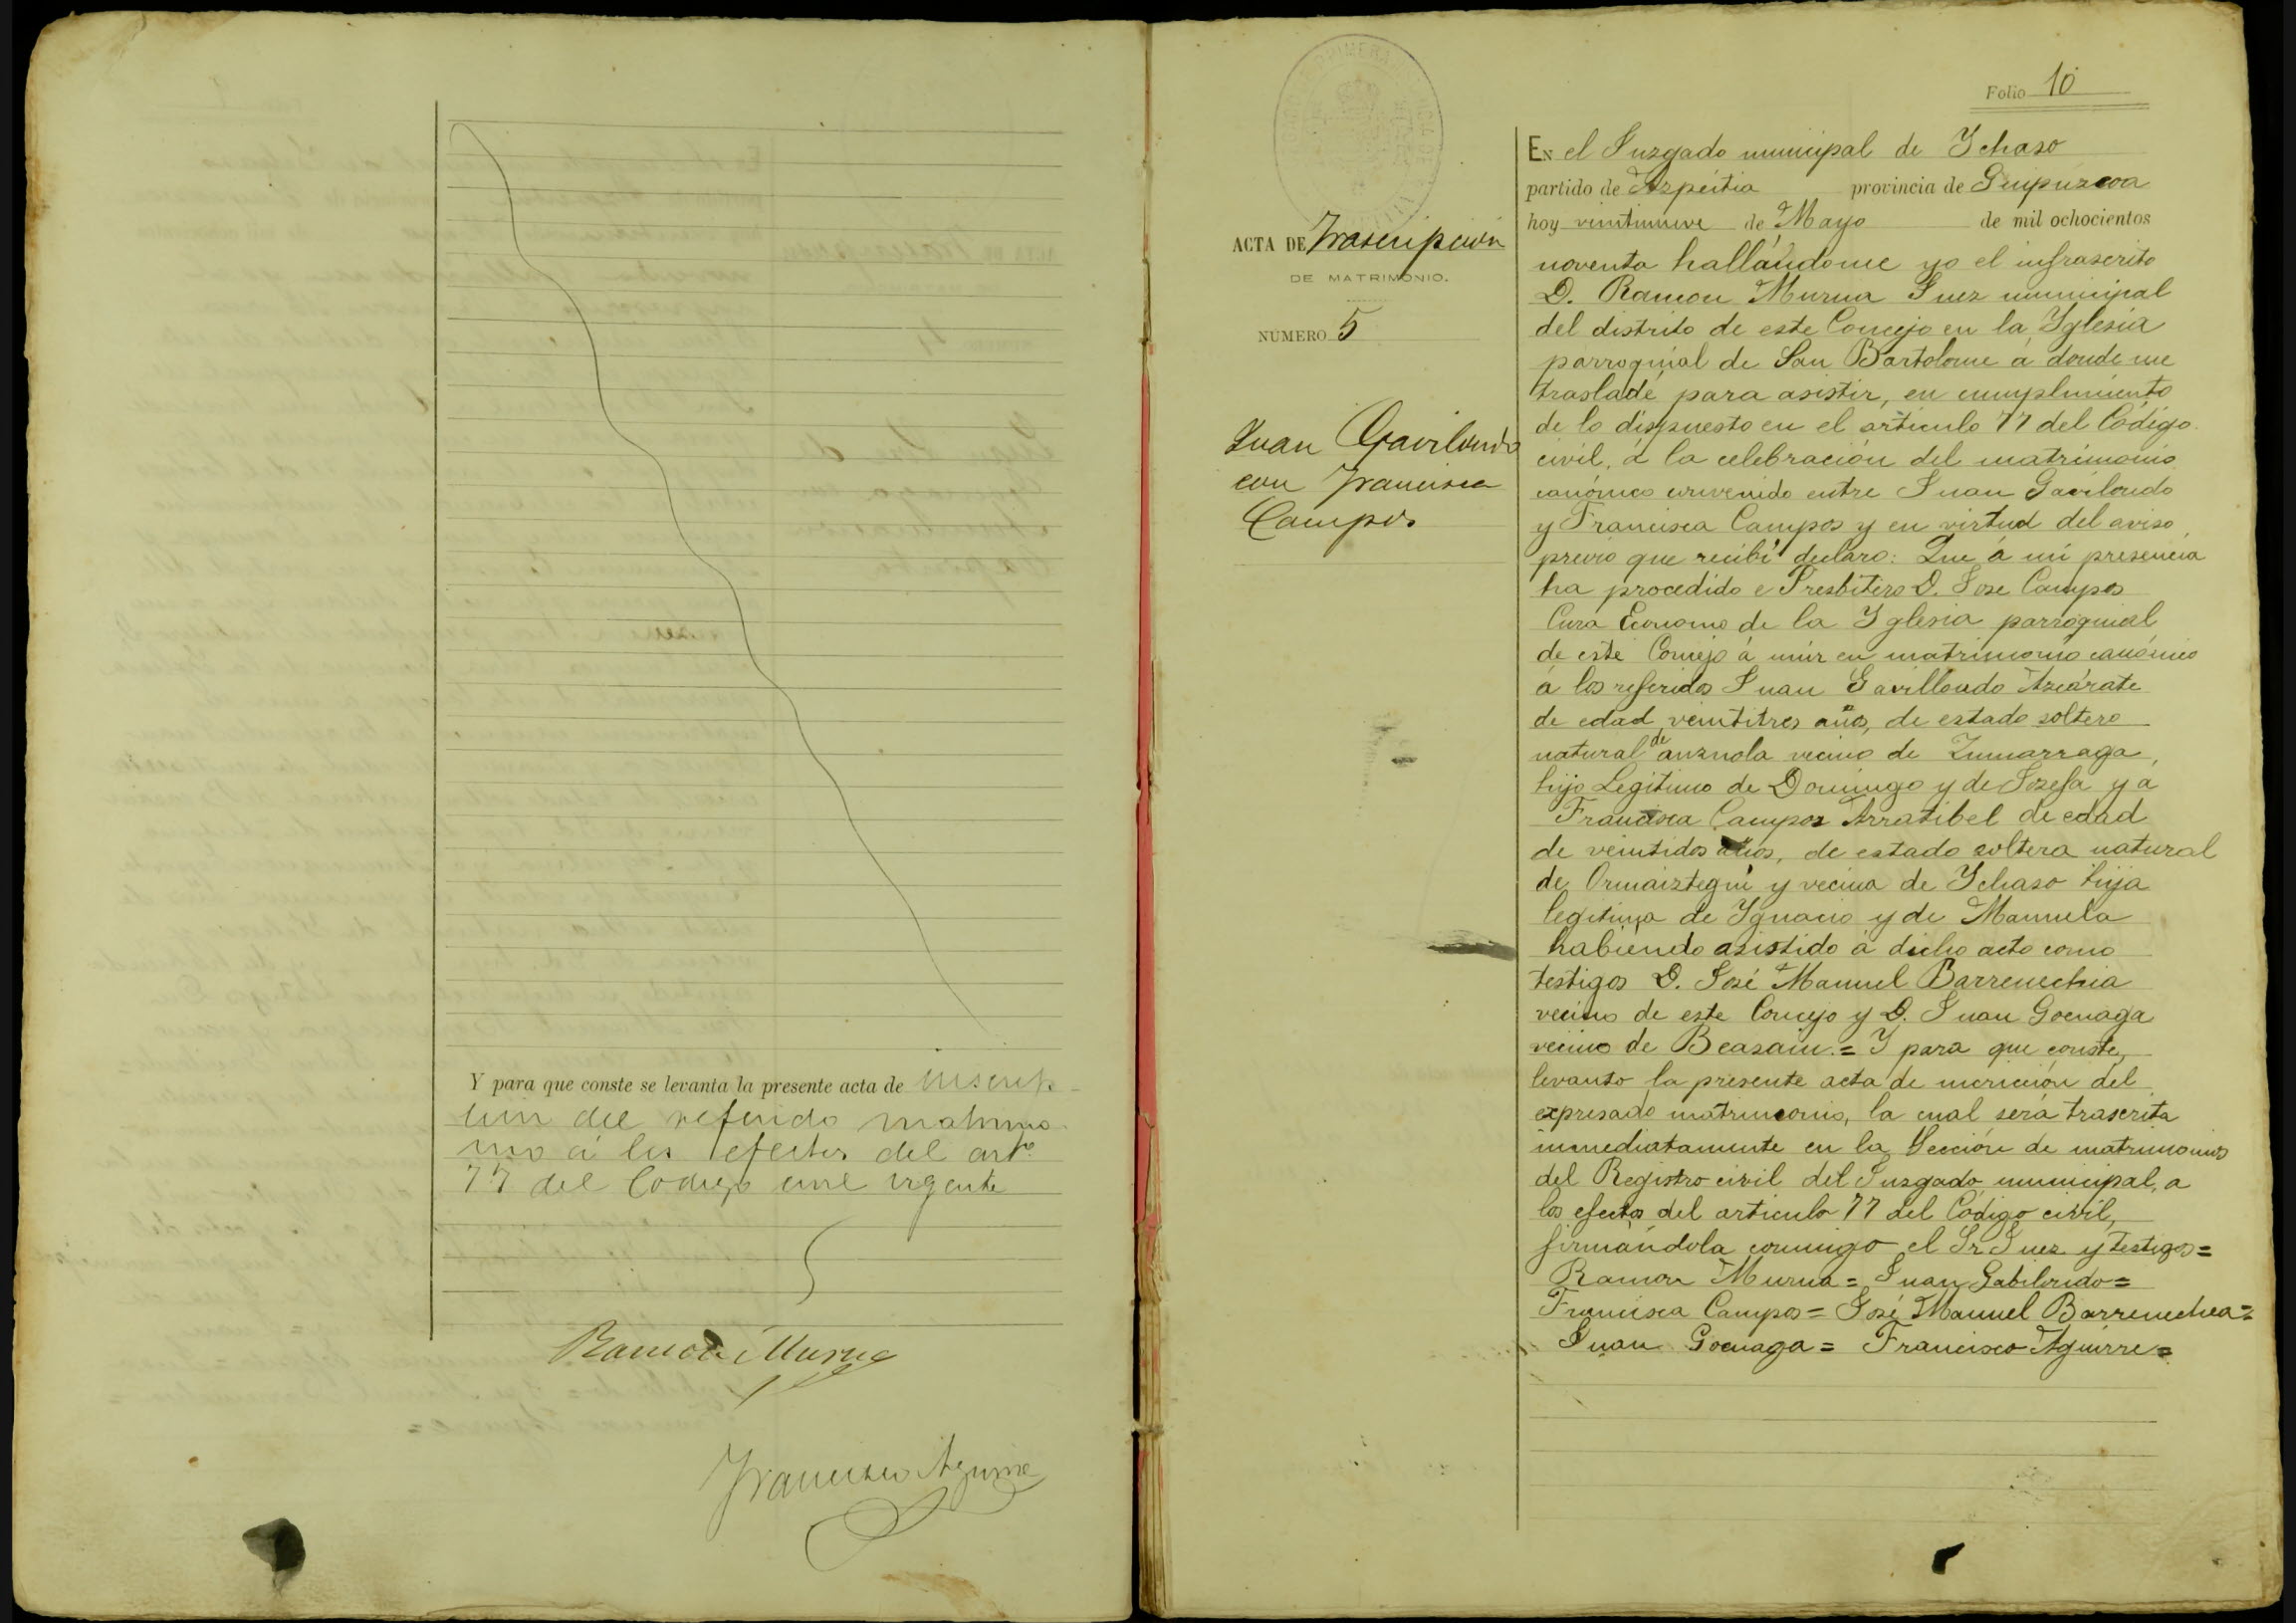 Y para que conste se levanta la presente acta de inscrip-
ción del referido matrimo-
nio á los efectos del artº
77 del Codigo civil vigente
Ramon Murua
Francisco Aguirre
Folio 10
ACTA DE Trascripción
DE MATRIMONIO.
NÚMERO 5
Juan Gavilondo
con Francisca
Campos
En el Juzgado municipal de Ychaso
partido de Azpeitia provincia de Guipuzcoa
hoy veintinueve de Mayo de mil ochocientos
noventa hallándome yo el infrascrito
D. Ramon Murua Juez municipal
del distrito de este Concejo en la Yglesia
parroquial de San Bartolome á donde me
trasladé para asistir, en cumplimiento
de lo dispuesto en el articulo 77 del Código
civil, a la celebración del matrimonio
canónico convenido entre Juan Gavilondo
y Francisca Campos y en virtud del aviso
previo que recibí declaro: Que á mi presencia
ha procedido e Presbitero D. Jose Campos
Cura Economo de la Yglesia parroquial
de este Concejo á unir en matrimonio canónico
á los referidos Juan Gavillondo Azcárate
de edad veintitres años, de estado soltero
natural de anzuola vecino de Zumarraga,
hijo Legitimo de Domingo y de Josefa y á
Francisca Campos Arratibel de edad
de veintidos años, de estado soltera natural
de Ormaiztegui y vecina de Ychaso hija
legitima de Ygnacio y de Manuela
habiendo asistido á dicho acto como
testigos D. José Manuel Barrenechia
vecino de este Concejo y D. Juan Goenaga
vecino de Beasain.= Y para que conste,
levanto la presente acta de incrición del
expresado matrimonio, la cual será trascrita
inmediatamente en la Sección de matrimonios
del Registro civil del Juzgado municipal, a
los efectos del articulo 77 del Código civil,
firmándola conmigo el Sr Juez y testigos=
Ramon Murua= Juan Gabilondo=
Francisca Campos= José Manuel Barrenechea=
Juan Goenaga= Francisco Aguirre=